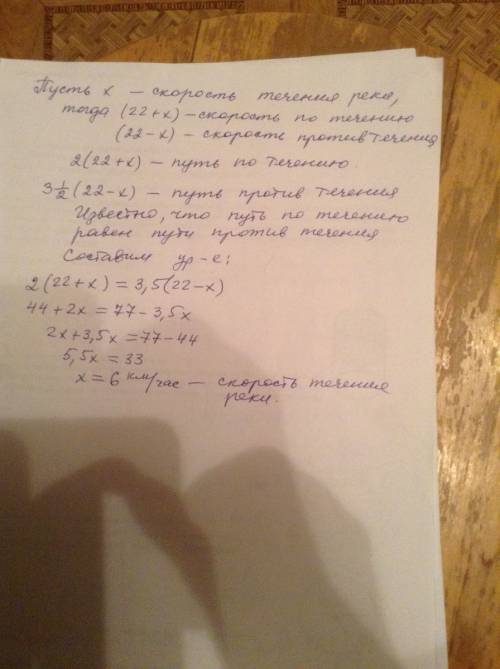 Пусть x — скорость течения реки,
тогда (22+x) – скорость по течению
(22-x) – скорость против течения
2(22+x) — путь по течению.
3 1/2 (22-x) — путь против течения
Известно, что путь по течению
равен пути против течения
Составим ур-е:
2(22+x) = 3,5(22-x)
44+2x = 77-3,5x
2x+3,5x=77-44
5,5x = 33
x = 6 км/час — скорость течения
реки.